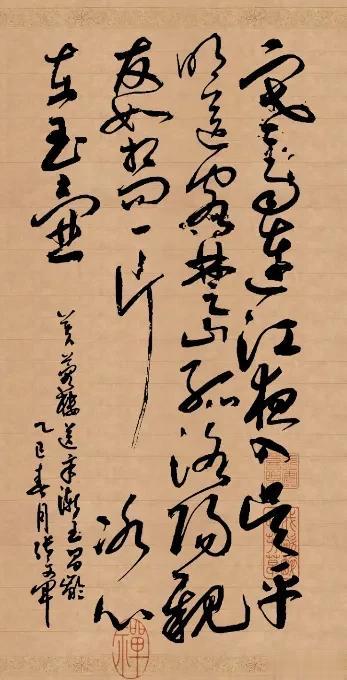 寒雨連江夜入吳平
明送客楚山孤洛陽親
友如相問一片冰心
在玉壺
芙蓉樓送辛漸王昌齡
乙巳春月張
禪